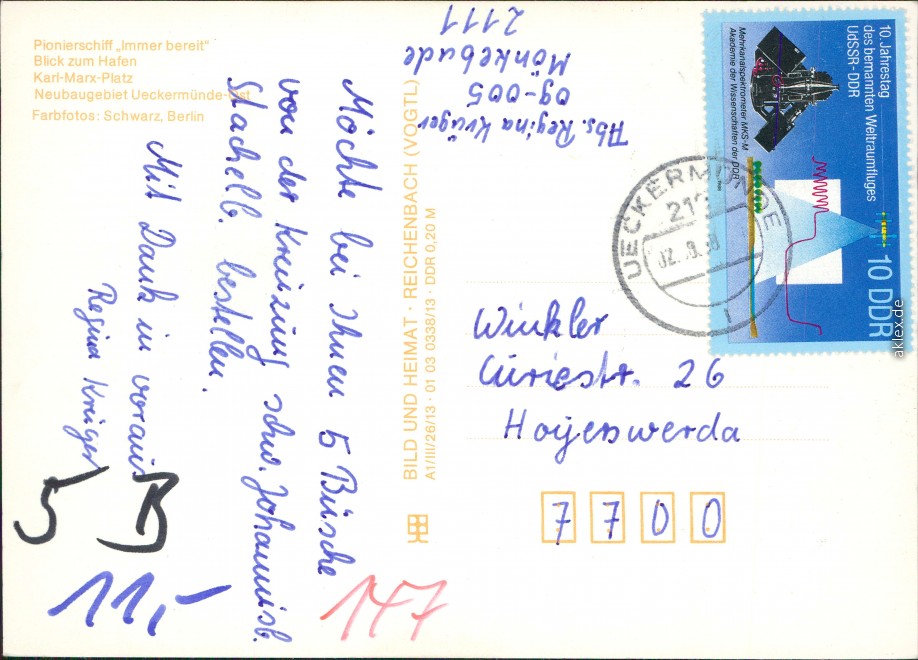 Pionierschiff „Immer bereit"
Blick zum Hafen
Karl-Marx-Platz
Neubaugebiet Ueckermünde-Ost
Farbfotos: Schwarz, Berlin
Möchte bei Ihnen 5 Büsche
von der Kreuzung schw. Johannisb.
Stachelb. bestellen.
Mit Dank in voraus
Regina Krüger
5
11,-
147
BILD UND HEIMAT · REICHENBACH (VOGTL)
A1/III/26/13 · 01 03 0338/13 · DDR 0,20 M
Abs. Regina Krüger
og-005
Mönkebude
2111
10. Jahrestag
des bemannten Weltraumfluges
UdSSR-DDR
Mehrkanalspektrometer MKS-M
Akademie der Wissenschaften der DDR
10 DDR
UECKERMÜNDE
Winkler
Curiestr. 26
Hoyerswerda
7700
aklex.de